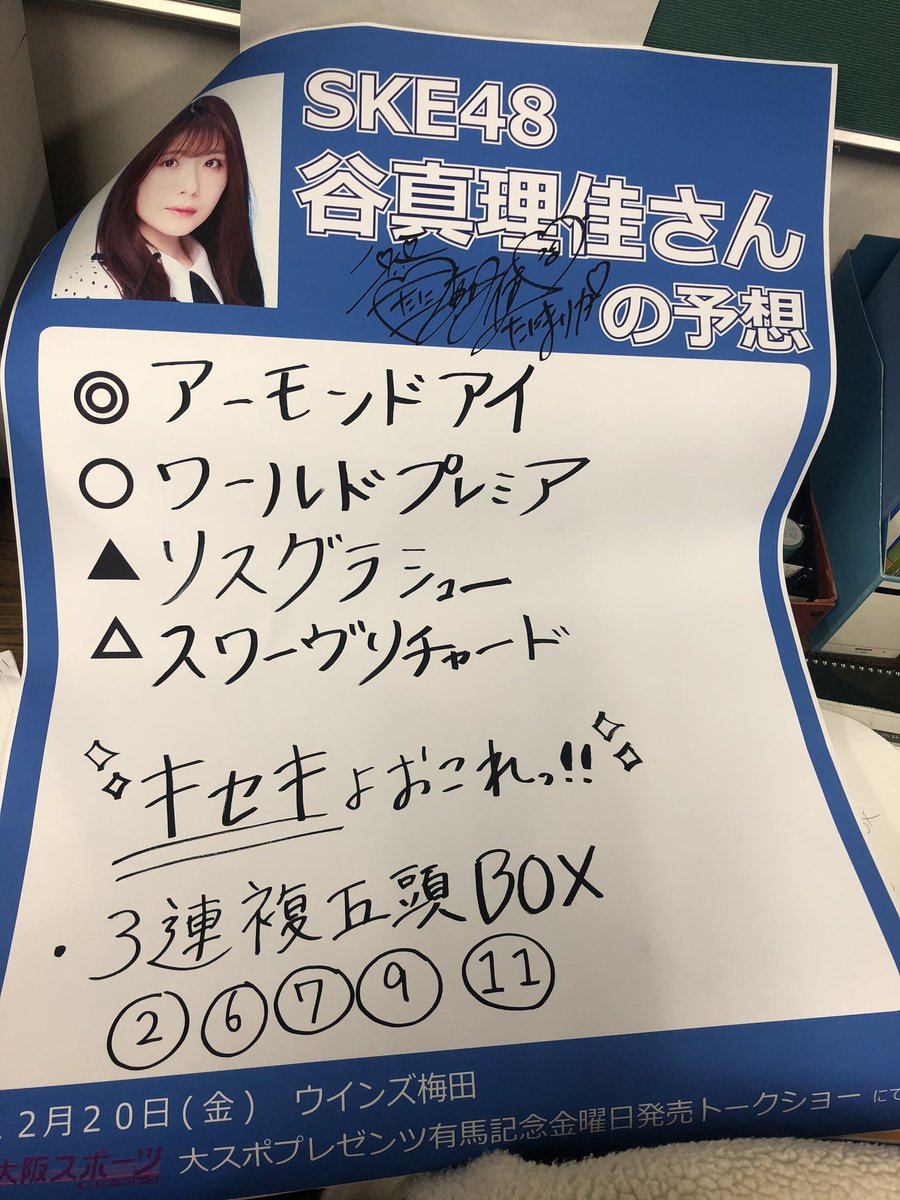 SKE48
谷真理佳さん
の予想
たにまりか
◎ アーモンドアイ
○ ワールドプレミア
▲ リスグラシュー
△ スワーヴリチャード
キセキよおこれっ!!
・3連複五頭BOX
② ⑥ ⑦ ⑨ ⑪
2月20日(金) ウインズ梅田
大阪スポーツ 大スポプレゼンツ有馬記念金曜日発売トークショーにて